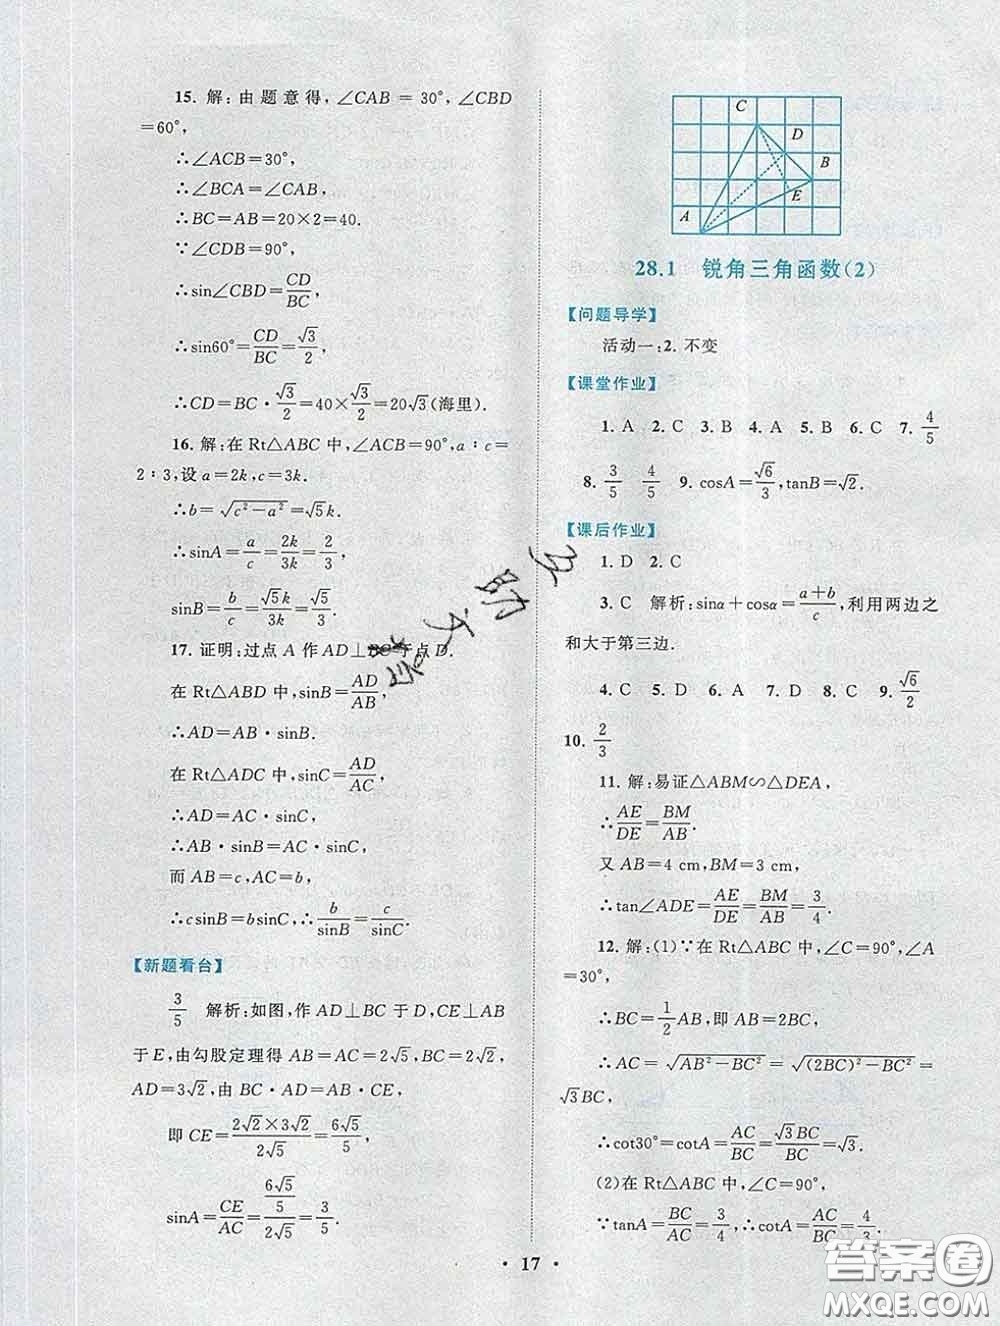 15. 解:由题意得,∠CAB=30°,∠CBD
=60°,
∴∠ACB=30°,
∴∠BCA=∠CAB,
∴BC=AB=20×2=40.
∵∠CDB=90°,
∴sin∠CBD=CD/BC,
∴sin60°=CD/BC=√3/2,
∴CD=BC·√3/2=40×√3/2=20√3(海里).
16. 解:在Rt△ABC中,∠ACB=90°,a∶c=
2∶3,设a=2k,c=3k.
∴b=√(c²-a²)=√5k.
∴sinA=a/c=2k/3k=2/3,
sinB=b/c=√5k/3k=√5/3.
17. 证明:过点A作AD⊥BC于点D.
在Rt△ABD中,sinB=AD/AB,
∴AD=AB·sinB.
在Rt△ADC中,sinC=AD/AC,
∴AD=AC·sinC,
∴AB·sinB=AC·sinC,
而AB=c,AC=b,
∴csinB=bsinC,∴b/sinB=c/sinC.
【新题看台】
3/5 解析:如图,作AD⊥BC于D,CE⊥AB
于E,由勾股定理得AB=AC=2√5,BC=2√2,
AD=3√2,由BC·AD=AB·CE,
即CE=(2√2×3√2)/(2√5)=6√5/5,
sinA=CE/AC=(6√5/5)/(2√5)=3/5.
C
D
B
E
A
28.1 锐角三角函数(2)
【问题导学】
活动一:2. 不变
【课堂作业】
1. A 2. C 3. B 4. A 5. B 6. C 7. 4/5
8. 3/5 4/5 9. cosA=√6/3,tanB=√2.
【课后作业】
1. D 2. C
3. C 解析:sinα+cosα=(a+b)/c,利用两边之
和大于第三边.
4. C 5. D 6. A 7. D 8. C 9. √6/2
10. 2/3
11. 解:易证△ABM∽△DEA,
∴AE/DE=BM/AB.
又AB=4 cm,BM=3 cm,
∴tan∠ADE=AE/DE=BM/AB=3/4.
12. 解:(1)∵在Rt△ABC中,∠C=90°,∠A=
30°,
∴BC=1/2AB,即AB=2BC,
∴AC=√(AB²-BC²)=√((2BC)²-BC²)=
√3BC,
∴cot30°=cotA=AC/BC=√3BC/BC=√3.
(2)在Rt△ABC中,∠C=90°,
∵tanA=BC/AC=3/4,∴cotA=AC/BC=4/3.
• 17 •
答案圈
MXQE.COM